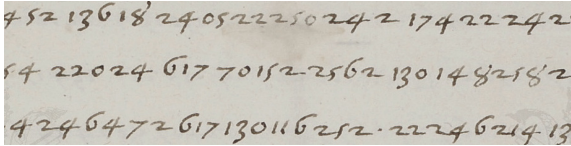 452 13618 24052225024 2 17422242
54 22024 617 70152.2562 130148258 2
.4246472617130116252.2224621413